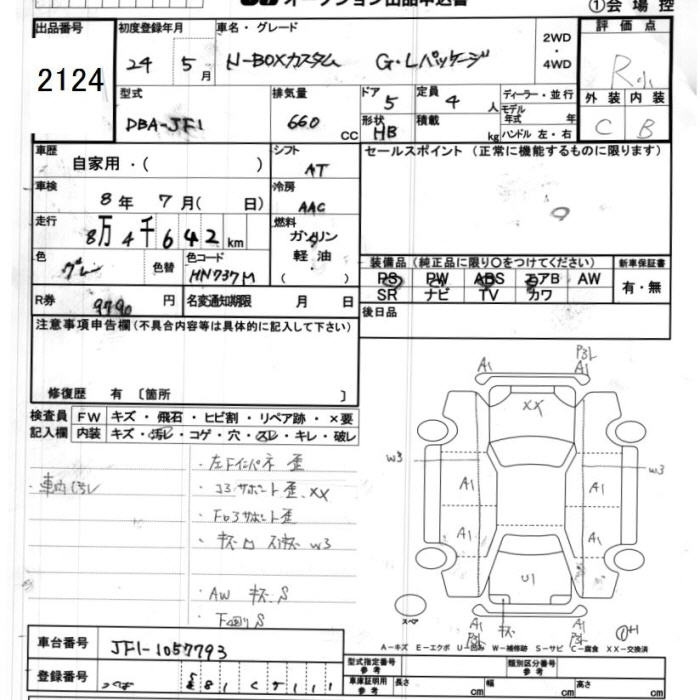 オークション出品申込書 ①会場控
出品番号 初度登録年月 車名・グレード 2WD・4WD 評価点
2124 24 5月 N-BOXカスタム G・Lパッケージ R
型式 排気量 ドア 5 定員 4人 ディーラー・並行 外装 内装
DBA-JF1 660 CC 形状 HB 積載 kg モデル年式 年 ハンドル 左・右 C B
車歴 自家用・( ) シフト AT セールスポイント (正常に機能するものに限ります)
車検 8年 7月( 日) 冷房 AAC
走行 8万4千642km 燃料 ガソリン 軽油・( )
色 グレー 色替 色コード NH737M 装備品 (純正品に限り○をつけてください) 新車保証書
PS PW ABS エアB AW 有・無
SR ナビ TV カワ
R券 9790円 名変通知期限 月 日 後日品
注意事項申告欄 (不具合内容等は具体的に記入して下さい)
修復歴 有 〔箇所 〕
検査員 FW キズ・飛石・ヒビ割・リペア跡・×要
記入欄 内装 キズ・汚レ・コゲ・穴・スレ・キレ・破レ
・車内汚レ
・左Fインパネ歪
・コアサポート歪、XX
・キズ W3
・AW キズ S
・F廻り S
A1 P3L A1
XX
W3 W3
A1 A1
A1 A1
U1
A1 キズ A1
スペア
A-キズ E-エクボ U-凹み W-補修跡 S-サビ C-腐食 XX-交換済
車台番号 JF1-1057793
登録番号 つくば 581 1111
型式指定番号 参考 類別区分番号 参考
車庫証明用 参考 長さ cm 幅 cm 高さ cm